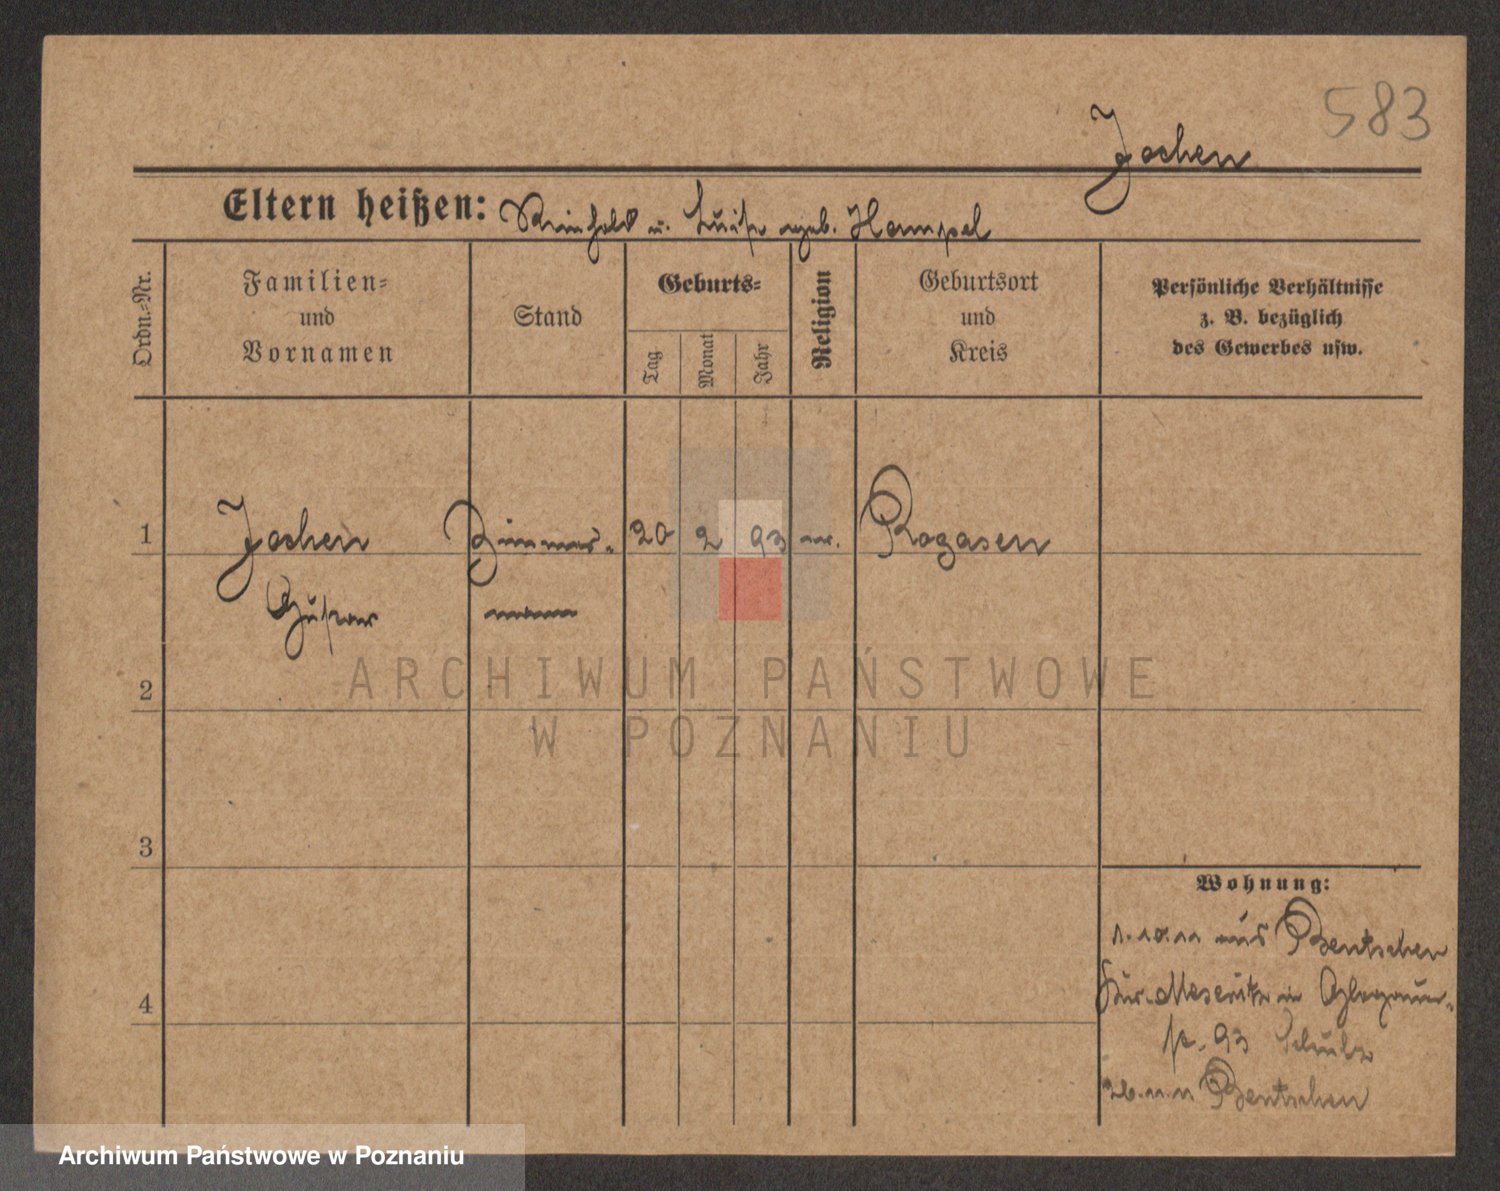 583
Jochen
Eltern heißen: Reinhold u. Luise geb. Hempel
Ordn.-Nr.
Familien-
und
Vornamen
Stand
Geburts-
Tag
Monat
Jahr
Religion
Geburtsort
und
Kreis
Persönliche Verhältnisse
z. B. bezüglich
des Gewerbes usw.
1
Jochen
Zimmer-
20
2
93
ev.
Rogasen
Gustav
mann
2
3
4
Wohnung:
1.10.11 aus Bentschen
Kr. Meseritz in Glogauer-
str. 93 Schulz
26.11.11 Bentschen
ARCHIWUM PAŃSTWOWE
W POZNANIU
Archiwum Państwowe w Poznaniu